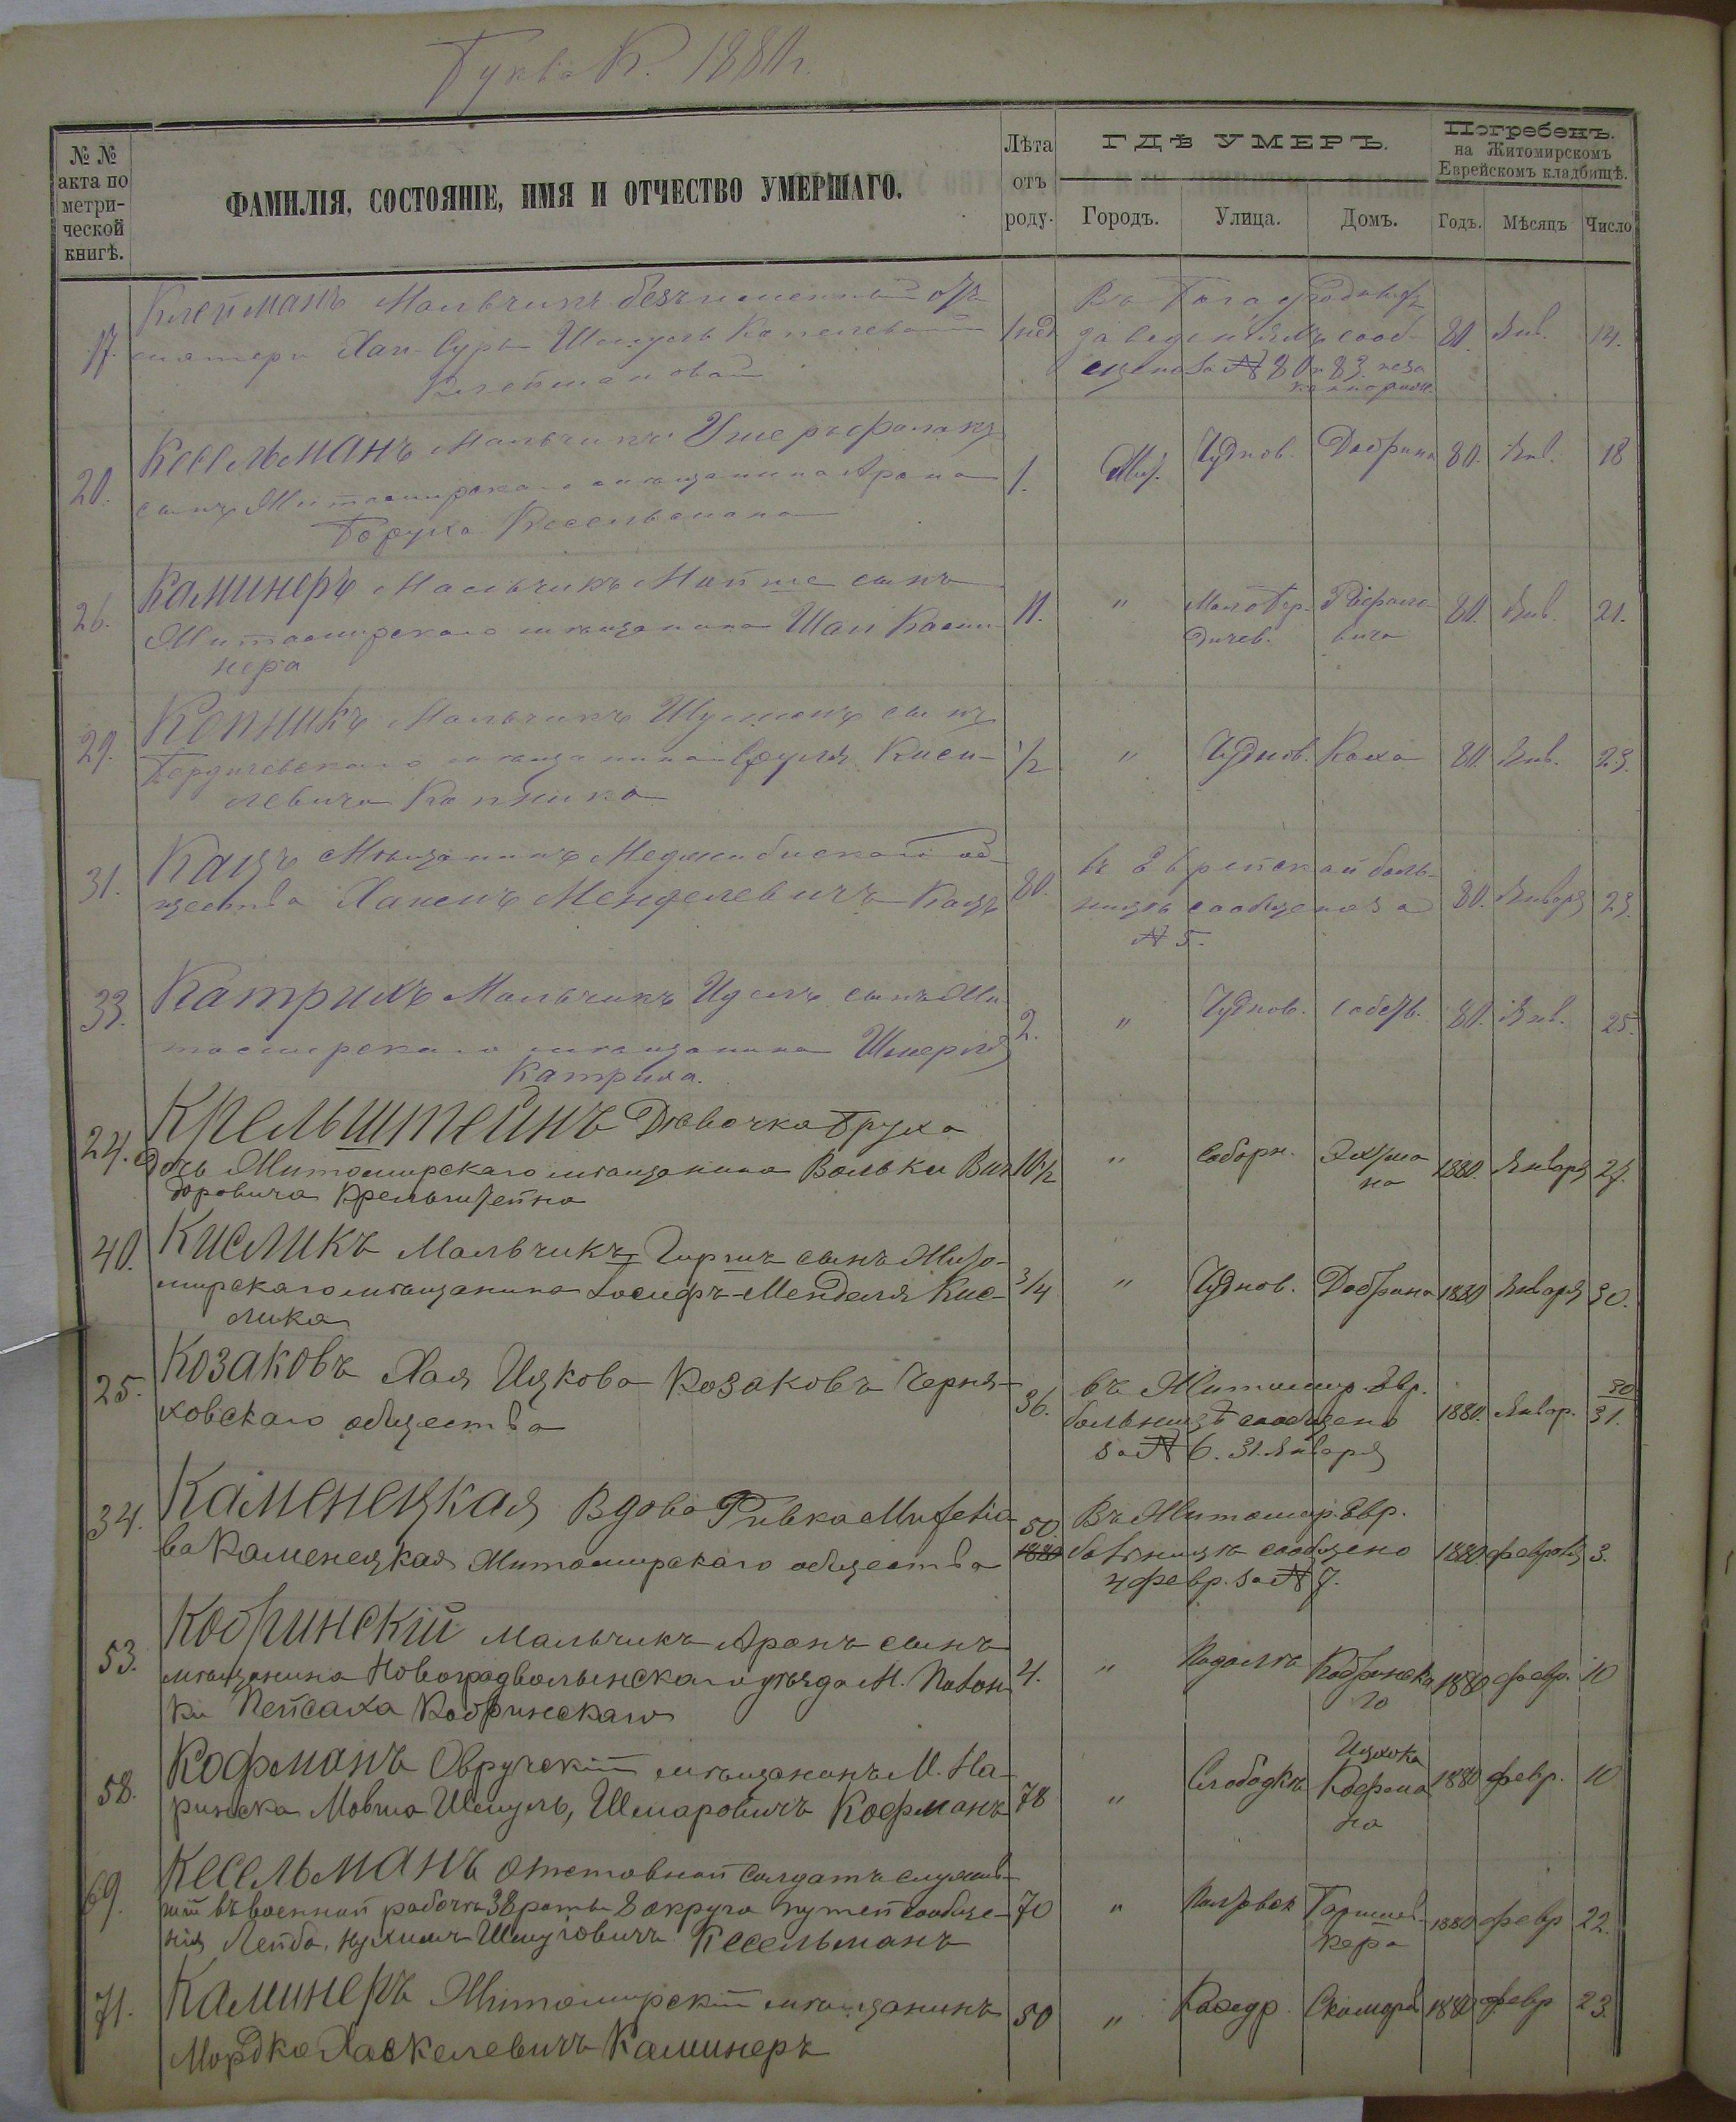 Буква К. 1880 г.
№ №
акта по
метри-
ческой
книгѣ.
ФАМИЛІЯ, СОСТОЯНІЕ, ИМЯ И ОТЧЕСТВО УМЕРШАГО.
Лѣта
отъ
роду.
ГДѢ УМЕРЪ.
Городъ. Улица. Домъ.
Погребенъ.
на Житомирскомъ
Еврейскомъ кладбищѣ.
Годъ. Мѣсяцъ Число
17. Клейманъ Мальчикъ безъименный отъ
матери Хаи-Суры Шмуль Копелевой
Клеймановой
1 нед. Въ Богоугодномъ
заведеніи сооб-
щено за № 80 и 83
80. Янв. 14.
20. Кесельманъ Мальчикъ
сынъ Житомирскаго мѣщанина Арона
Боруха Кесельмана
1. Жит. Чуднов. Добрина 80. Янв. 18
26. Каминеръ Мальчикъ Мойше сынъ
Житомирскаго мѣщанина Шаи Ками-
нера
11. " Мало Бер-
дичев. 80. Янв. 21.
29. Копникъ Мальчикъ Шулимъ сынъ
Бердичевскаго мѣщанина Сруля Киси-
левича Копника
1/2 " Чуднов. Каха 80. Янв. 23.
31. Кацъ Мѣщанинъ Меджибискаго об-
щества Ханенъ Менделевичъ Кацъ
80. въ Еврейской боль-
ницѣ сообщено за
№ 5.
80. Января 23.
33. Катрихъ Мальчикъ Идель сынъ Жи-
томирскаго мѣщанина Шмерля
Катриха.
2. " Чуднов. собств. 80. Янв. 25.
24. Крельштейнъ Дѣвочка Бруха
дочь Житомирскаго мѣщанина Вольки Виг-
доровича Крельштейна
10 1/2 " Соборн. Эхтма
на 1880. Января 27.
40. Кисликъ Мальчикъ Гиршъ сынъ Жито-
мирскаго мѣщанина Іосифъ-Менделя Кис-
лика
3/4 " Чуднов. Добрина 1880 Января 30.
25. Козаковъ Хая Ицкова Козаковъ Черня-
ховскаго общества
36. въ Житомир. Евр.
больницѣ сообщено
за № 6. 31. Января
1880. Январ. 30
31.
34. Каменецкая Вдова Ривка
ва Каменецкая Житомирскаго общества
50. 1880 Въ Житомир. Евр.
больницѣ сообщено
4 февр. за № 7.
1880. февраля 3.
53. Кобринскій Мальчикъ Аронъ сынъ
мѣщанина Новоградволынскаго уѣзда М. Полон-
ки Пейсаха Кобринскаго
4. " Подолѣ Кобринска
го 1880 февр. 10
58. Кофманъ Овручскій мѣщанинъ М. На-
ринска Мовша Шмуль, Шмаровичъ Кофманъ
78 " Слободкѣ Ицхока
Кофма
на 1880 февр. 10
69. Кесельманъ Отставной Солдатъ служив-
шій въ военной рабочѣ 38 роты 8 округа путей сообще-
нія Лейба, Нухимъ Шмуловичъ Кесельманъ
70 " 1880 февр 22.
71. Каминеръ Житомирскій мѣщанинъ
Мордко Хаскелевичъ Каминеръ
50 " Каѳедр. 1880 февр 23.